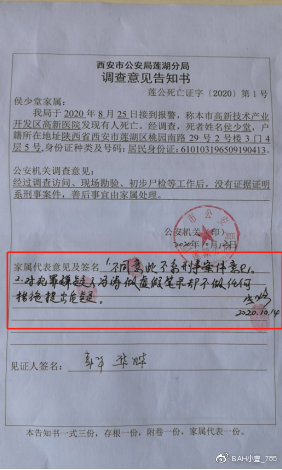 西安市公安局莲湖分局
调查意见告知书
莲公死亡证字〔2020〕第1号
侯少堂家属:
我局于2020年8月25日接到报警,称本市高新技术产业
开发区高新医院发现有人死亡,经调查,死者姓名侯少堂,户
籍所在地址陕西省西安市莲湖区桃园南路29号2号楼3门4
层5号,身份证种类及号码:居民身份证:610103196509190413。
公安机关调查意见:
经过调查访问、现场勘验、初步尸检等工作后,没有证据证明
系刑事案件,善后事宜由家属处理。
公安机关(印)
2020年10月14日
家属代表意见及签名 1.不同意此不系刑事案件意见。
2.对
做虚假笔录却不做任何
措施提出
2020.10.14
见证人签名:
本告知书一式三份,存根一份,附卷一份,家属代表一份。
@AH小壹_765